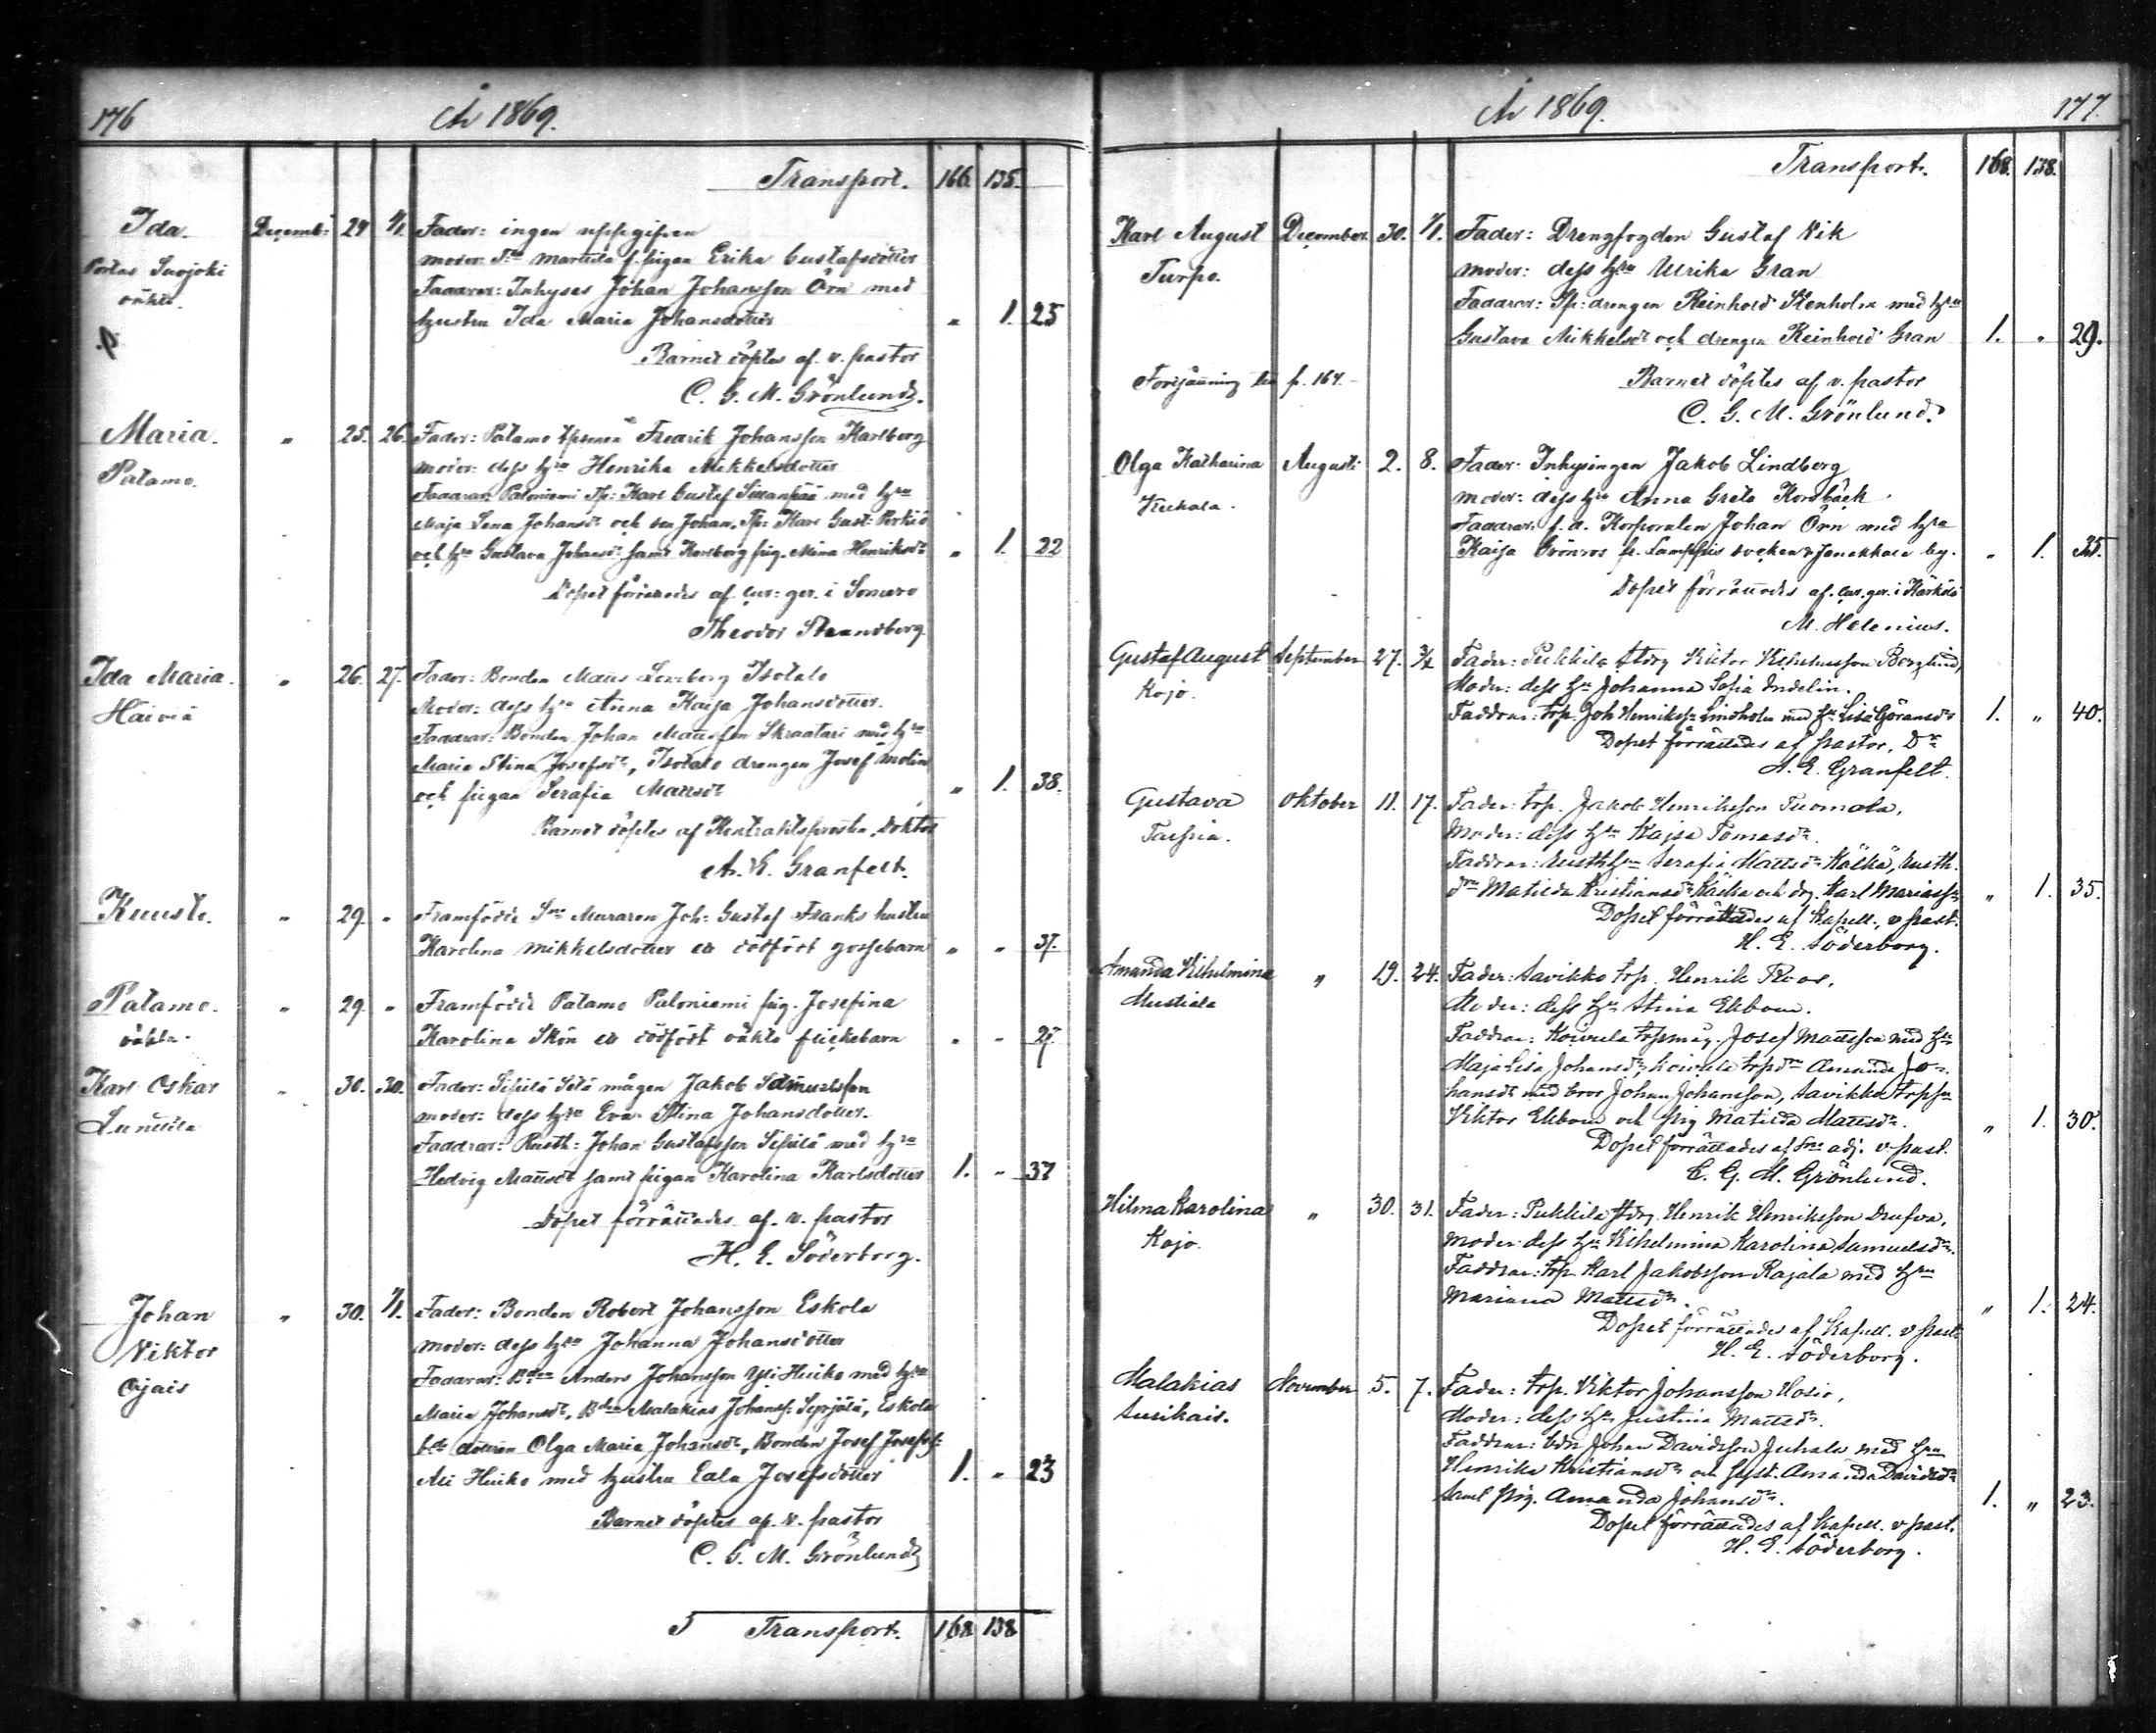 176
År 1869.
Transport. 166. 135.
Ida. Decemb: 24 1/1. Fader: ingen uppgifven
moder: pigan Erika Gustafsdotter
Portas Suojoki
oäkta.
Faddrar: Inhyses Johan Johansson Örn med
hustru Ida Maria Johansdotter " 1. 25
Barnet döptes af v. pastor
C. G. M. Grönlund.
Maria. " 25. 26. Fader: Patamo Fredrik Johansson Karlberg
Patamo.
moder: dess hru Henrika Mikkelsdotter
Faddrar: Paloniemi Tp: Karl Gustaf Sillanpää med hru
Maja Lena Johansdr och son Johan, Tp: Karl Gust:
och hru Gustava Johansdr samt Karlberg pig. Mina Henriksdr " 1. 22
Dopet förrättades af i Somero
Theodor Strandberg.
Ida Maria. " 26. 27. Fader: Bonden Matts Isotalo
Häiviä
Moder: dess hru Anna Kaisa Johansdotter.
Faddrar: Bonden Johan Mattsson Skraatari med hru
Maria Stina Josefsdr, Isotalo drengen Josef Molin
och pigan Serafia Mattsdr " 1. 38.
Barnet döptes af Kontraktsprosten, Doktor
A. E. Granfelt.
Kuusto. " 29. " Framfödde Muraren Joh: Gustaf Franks hustru
Karolina Mikkelsdotter ett dödfödt gossebarn " " 37.
Patamo. " 29. " Framfödde Patamo Paloniemi pig. Josefina
oäkta.
Karolina Skön ett dödfödt oäkta flickebarn " " 27.
Karl Oskar " 30. 30. Fader: Sipilä Sitä mågen Jakob Samuelsson
moder: dess hru Eva Stina Johansdotter.
Faddrar: Rusth: Johan Gustafsson Sipilä med hru
Hedvig Mattsdr samt pigan Karolina Karlsdotter 1. " 37
Dopet förrättades af v. pastor
H. E. Söderborg.
Johan " 30. 1/1. Fader: Bonden Robert Johansson Eskola
Viktor
moder: dess hru Johanna Johansdotter
Ojais
Faddrar: Bden Anders Johansson Yli Heiko med hru
Maria Johansdr, Bden Malakias Johanss: Syrjälä, Eskola
bde dottren Olga Maria Johansdr, Bonden Josef Josefss:
Ali Heiko med hustru Eala Josefsdotter 1. " 23
Barnet döptes af v. pastor
C. G. M. Grönlund
Transport. 168 138
År 1869.
177.
Transport. 168. 138.
Karl August December. 30. 1/1. Fader: Drengfogden Gustaf Wik
Turpo.
moder: dess hru Ulrika Gran
Faddrar: Tp: drengen Reinhold Stenholm med hru
Gustava Mikkelsdr och drengen Reinhold Gran 1. " 29.
Fortsättning fr. p. 164.
Barnet döptes af v. pastor
C. G. M. Grönlund.
Olga Katharina Augusti 2. 8. Fader: Inhysingen Jakob Lindberg
moder: dess hru Anna Greta Nordbäck.
Faddrar: f.d. Korporalen Johan Örn med hru
Kaisa Grönros fr. Lampis socken Janakkala by. " 1. 35.
Dopet förrättades af i Kärkölä
M. Helenius.
Gustaf August September 27. 3/X Fader: Pukkila Viktor Vilhelmsson Berglund,
Kojo.
Moder: dess hru Johanna Sofia Indelin.
Faddrar: torp. Joh Henrikss: Lindholm med hru Lisa Göransdr 1. " 40.
Dopet förrättades af pastor, Dr
A. E. Granfelt.
Gustava oktober 11. 17. Fader: torp. Jakob Henriksson Tuomola,
Talpia.
Moder: dess hru Kaisa Tomasdr.
Faddrar: Serafia Mattsdr Kälkä,
Matilda Kristiansdr Kälkä och drg. Karl Mariass: " 1. 35.
Dopet förrättades af Kapell., v past.
H. E. Söderborg.
Amanda Vilhelmina " 19. 24. Fader: Savikko torp. Henrik Roos.
Mustiala
Moder: dess hru Stina Ekbom.
Faddrar: Koivula torpmåg. Josef Mattsson med hru
Maja Lisa Johansdr, Koivula torpdr Amanda Jo-
hansdr med bror Johan Johansson, Savikko torpson
Viktor Ekbom och pig Matilda Mattsdr. " 1. 30.
Dopet förrättades af adj. v. past.
C. G. M. Grönlund.
Hilma Karolina " 30. 31. Fader: Pukkila Henrik Henriksson Drufva,
Kojo.
Moder: dess hru Vilhelmina Karolina Samuelsdr.
Faddrar: torp Karl Jakobsson Rajala med hru
Mariana Mattsdr. " 1. 24.
Dopet förrättades af Kapell. v past
H. E. Söderborg.
Malakias November 5. 7. Fader: torp. Viktor Johansson Hosio,
Moder: dess hru Justina Mattsdr.
Faddrar: bdn Johan Davidsson Juhala med hru
Henrika Kristiansdr och Amanda Davidsdr
samt pig. Amanda Johansdr. 1. " 23.
Dopet förrättades af Kapell. v past.
H. E. Söderborg.